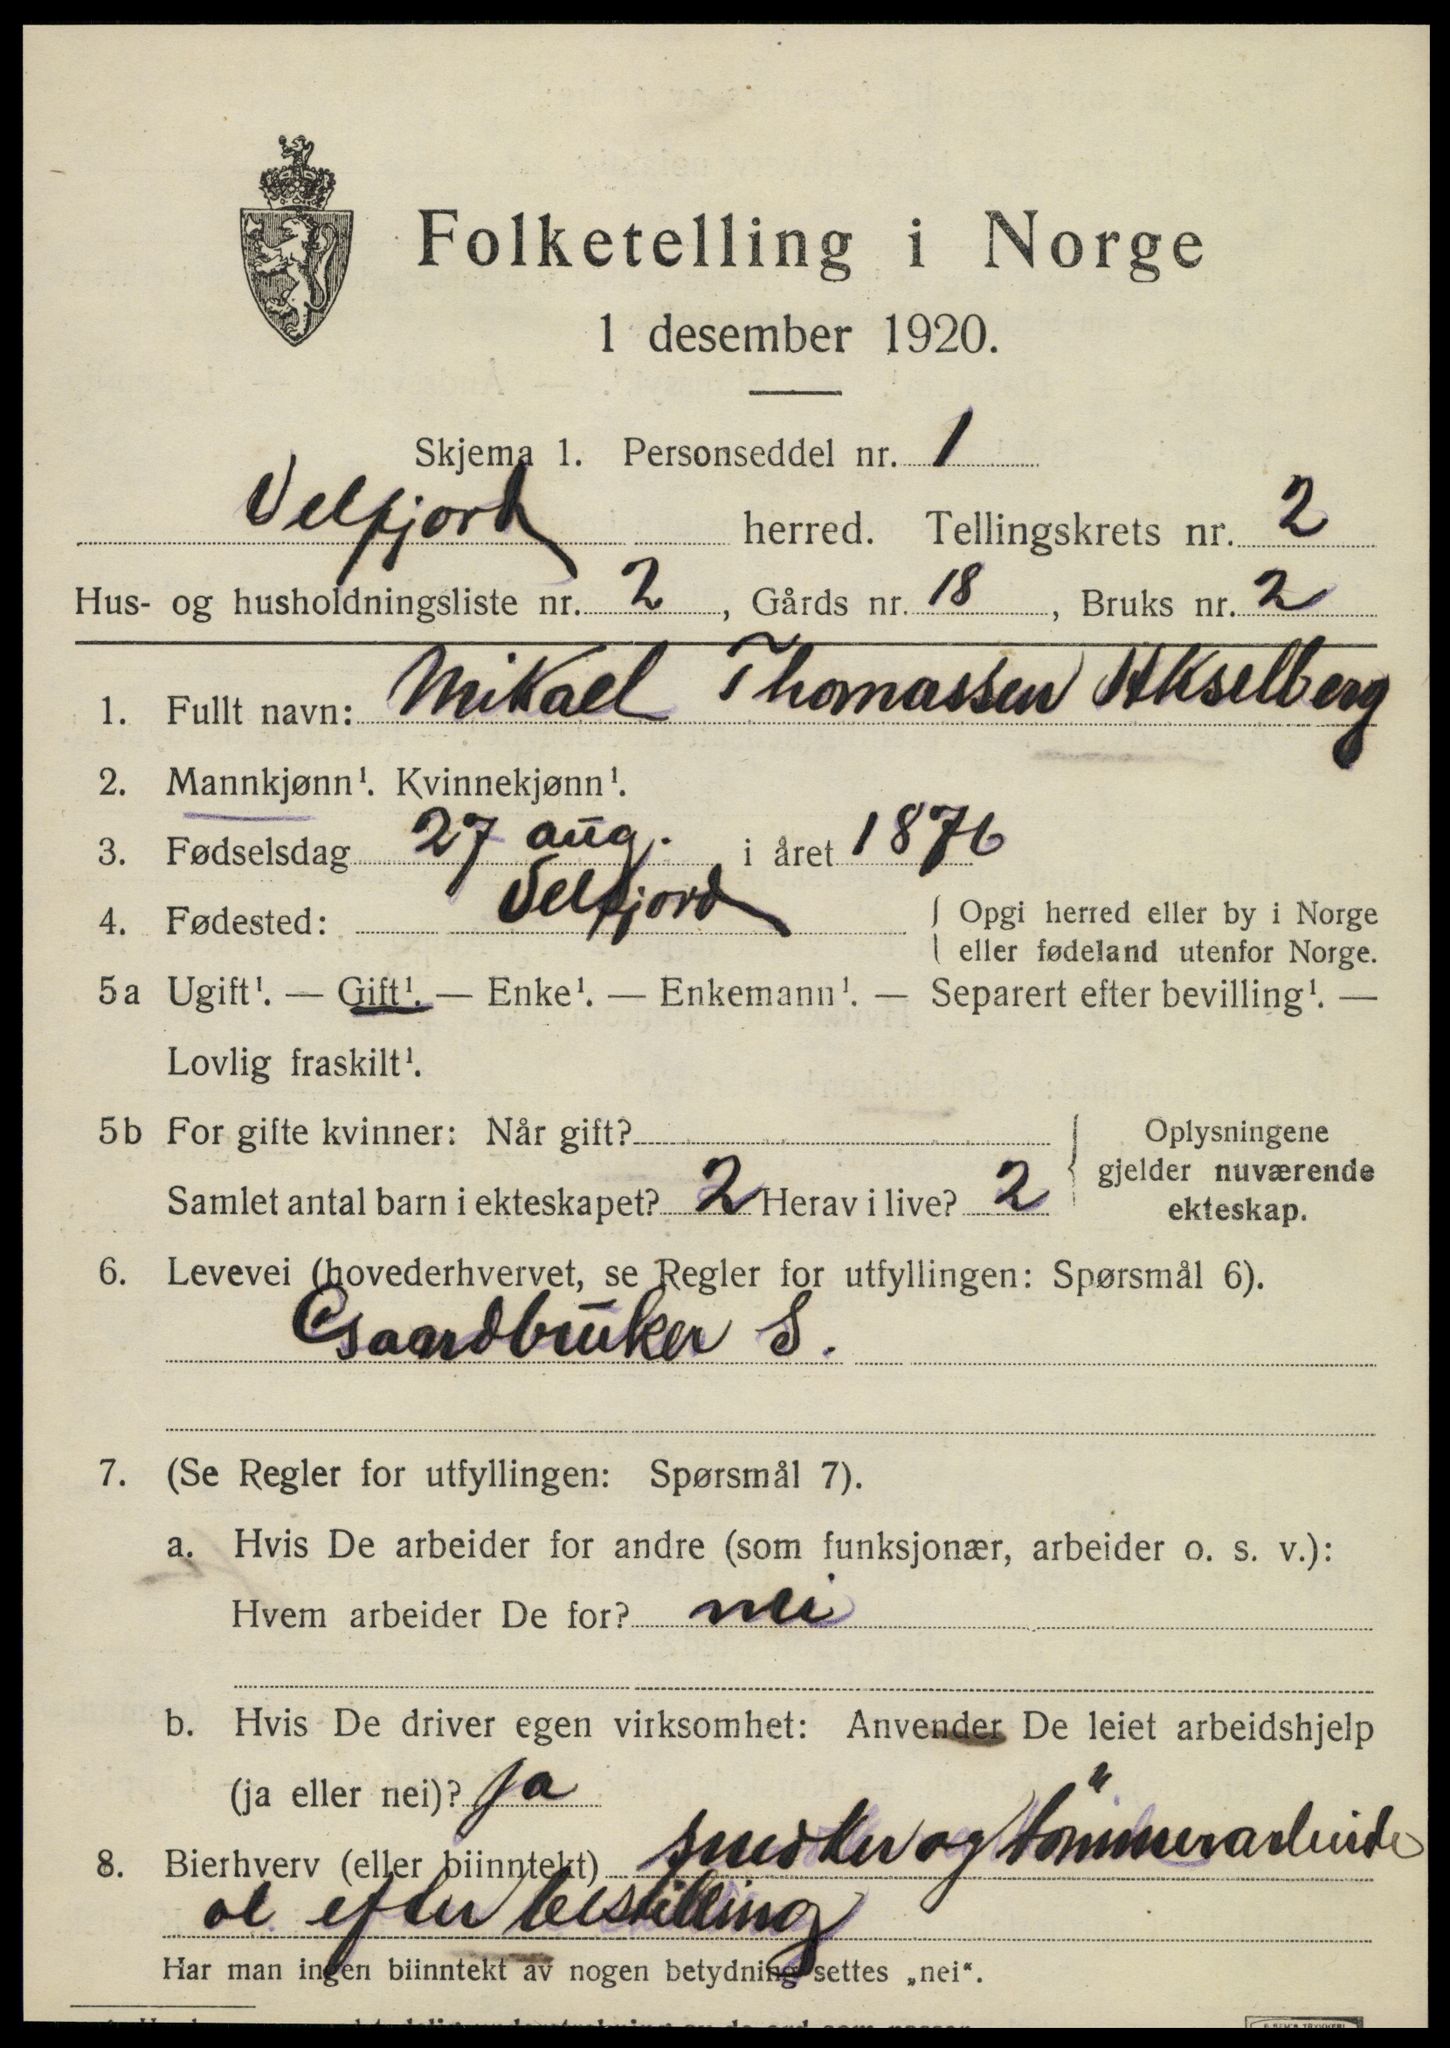 Folketelling i Norge
1 desember 1920.
Skjema 1. Personseddel nr. 1
Velfjord herred. Tellingskrets nr. 2
Hus- og husholdningsliste nr. 2, Gårds nr. 18, Bruks nr. 2
1. Fullt navn: Mikael Thomassen Akselberg
2. Mannkjønn¹. Kvinnekjønn¹.
3. Fødselsdag 27 aug. i året 1876
4. Fødested: Velfjord { Opgi herred eller by i Norge
eller fødeland utenfor Norge.
5a Ugift¹. — Gift¹. — Enke¹. — Enkemann¹. — Separert efter bevilling¹. —
Lovlig fraskilt¹.
5b For gifte kvinner: Når gift? { Oplysningene
gjelder nuværende
Samlet antal barn i ekteskapet? 2 Herav i live? 2
ekteskap.
6. Levevei (hovederhvervet, se Regler for utfyllingen: Spørsmål 6).
Gaardbruker S.
7. (Se Regler for utfyllingen: Spørsmål 7).
a. Hvis De arbeider for andre (som funksjonær, arbeider o. s. v.):
Hvem arbeider De for? nei
b. Hvis De driver egen virksomhet: Anvender De leiet arbeidshjelp
(ja eller nei)? ja
8. Bierhverv (eller biinntekt) snedker og tömmerarbeide
efter bestilling
Har man ingen biinntekt av nogen betydning settes „nei“.